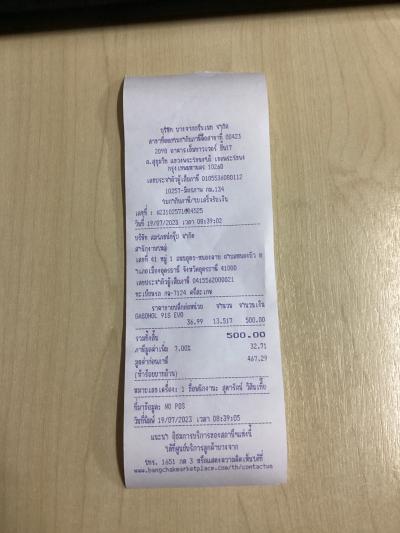 บริษัท บางจากกรีนเนท จำกัด
สาขาที่ออกใบกำกับภาษีคือสาขาที่ 00423
2098 อาคารเอ็มทาวเวอร์ ชั้น7
ถ.สุขุมวิท แขวงพระโขนงใต้ เขตพระโขนง
กรุงเทพมหานคร 10260
เลขประจำตัวผู้เสียภาษี 0105536080112
10257-มิตรภาพ กม.134
ใบกำกับภาษี/ใบเสร็จรับเงิน
เลขที่ :
วันที่ 19/07/2023 เวลา 08:39:02
บริษัท จำกัด
สำนักงานใหญ่
เลขที่ 41 หมู่ 1 ถนนอุดร-หนองคาย
อำเภอเมืองอุดรธานี จังหวัดอุดรธานี 41000
เลขประจำตัวผู้เสียภาษี 0415562000021
ทะเบียนรถ 7124 ศรีสะเกษ
ราคาขายปลีกต่อหน่วย จำนวน จำนวนเงิน
GASOHOL 91S EVO
36.99 13.517 500.00
รวมทั้งสิ้น 500.00
ภาษีมูลค่าเพิ่ม 7.00% 32.71
มูลค่าก่อนภาษี 467.29
(ห้าร้อยบาทถ้วน)
หมายเลขเครื่อง: 1 ชื่อพนักงาน: สุดารัตน์
ที่มาข้อมูล: NO POS
วันที่พิมพ์ 19/07/2023 เวลา 08:39:05
แนะนำ ติชมการบริการของสถานีฯแห่งนี้
ได้ที่ศูนย์บริการลูกค้าบางจาก
โทร. 1651 กด 3 หรือแสดงความคิดเห็นได้ที่
www.bangchakmarketplace.com/th/contactus